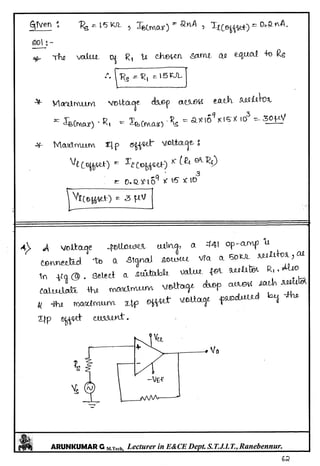 Given : Rs = 15 KΩ , IB(max) = 2nA , Ii(offset) = 0.2 nA.
Sol :-
* The value of R1 is chosen same as equal to Rs
∴ Rs = R1 = 15KΩ.
* Maximum voltage drop across each resistor
= IB(max) · R1 = IB(max) · Rs = 2×10⁻⁹ × 15 × 10³ = 30μV
* Maximum I/p offset voltage :
Vi(offset) = Ii(offset) × (R1 or Rs)
= 0.2×10⁻⁹ × 15 × 10³
VI(offset) = 3 μV
4) A voltage -follower using a 741 op-amp is
connected to a signal source via a 50KΩ resistor, as
in fig @. Select a suitable value for resistor R1. Also
calculate the maximum voltage drop across each resistor
& the maximum I/p offset voltage produced by the
I/p offset current.
VCC
+
-
Vo
-VEE
Rs
Vs
ARUNKUMAR G M.Tech, Lecturer in E&CE Dept. S.T.J.I.T., Ranebennur.
62